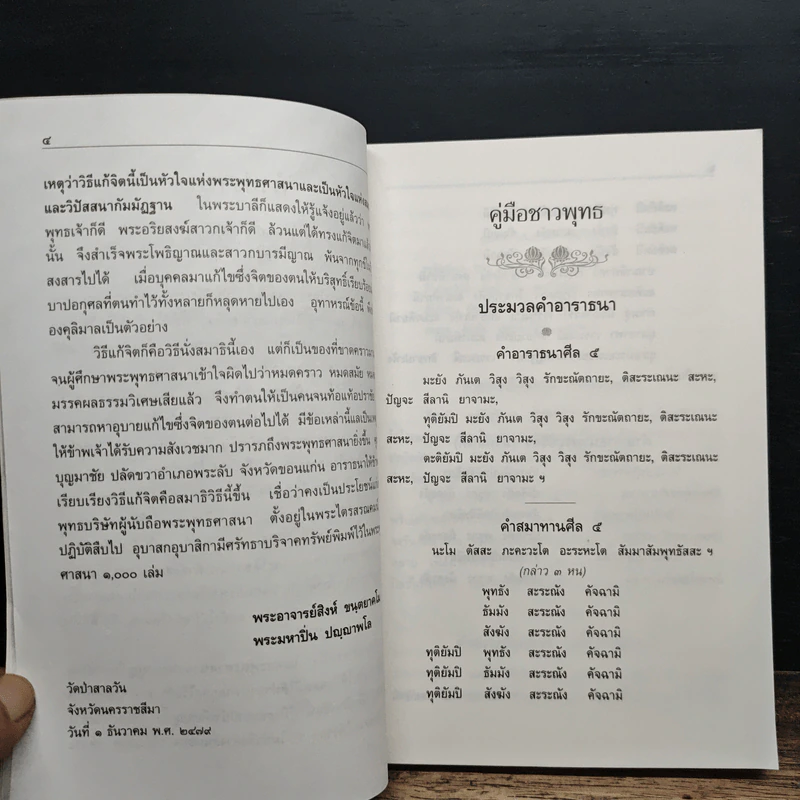 ๔
เหตุว่าวิธีแก้จิตนี้เป็นหัวใจแห่งพระพุทธศาสนาและเป็นหัวใจแห่ง
และวิปัสสนากัมมัฏฐาน ในพระบาลีก็แสดงให้รู้แจ้งอยู่แล้วว่า
พุทธเจ้าก็ดี พระอริยสงฆ์สาวกเจ้าก็ดี ล้วนแต่ได้ทรงแก้จิตมาแล้ว
นั้น จึงสำเร็จพระโพธิญาณและสาวกบารมีญาณ พ้นจากทุกข์
สงสารไปได้ เมื่อบุคคลมาแก้ไขซึ่งจิตของตนให้บริสุทธิ์เรียบร้อย
บาปอกุศลที่ตนทำไว้ทั้งหลายก็หลุดหายไปเอง อุทาหรณ์ข้อนี้
องคุลิมาลเป็นตัวอย่าง
วิธีแก้จิตก็คือวิธีนั่งสมาธินี้เอง แต่ก็เป็นของที่ขาดคราวมา
จนผู้ศึกษาพระพุทธศาสนาเข้าใจผิดไปว่าหมดคราว หมดสมัย
มรรคผลธรรมวิเศษเสียแล้ว จึงทำตนให้เป็นคนจนท้อแท้
สามารถหาอุบายแก้ไขซึ่งจิตของตนต่อไปได้ มีข้อเหล่านี้แลเป็น
ให้ข้าพเจ้าได้รับความสังเวชมาก ปรารภถึงพระพุทธศาสนายิ่งขึ้น
บุญมาชัย ปลัดขวาอำเภอพระลับ จังหวัดขอนแก่น อาราธนาให้
เรียบเรียงวิธีแก้จิตคือสมาธิวิธีนี้ขึ้น เชื่อว่าคงเป็นประโยชน์
พุทธบริษัทผู้นับถือพระพุทธศาสนา ตั้งอยู่ในพระไตรสรณคมน์
ปฏิบัติสืบไป อุบาสกอุบาสิกามีศรัทธาบริจาคทรัพย์พิมพ์ไว้ใน
ศาสนา ๑,๐๐๐ เล่ม
พระอาจารย์สิงห์ ขนฺตยาคโม
พระมหาปิ่น ปญฺญาพโล
วัดป่าสาลวัน
จังหวัดนครราชสีมา
วันที่ ๑ ธันวาคม พ.ศ. ๒๔๗๙
คู่มือชาวพุทธ
ประมวลคำอาราธนา
คำอาราธนาศีล ๕
มะยัง ภันเต วิสุง วิสุง รักขะณัตถายะ, ติสะระเณนะ สะหะ,
ปัญจะ สีลานิ ยาจามะ,
ทุติยัมปิ มะยัง ภันเต วิสุง วิสุง รักขะณัตถายะ, ติสะระเณนะ
สะหะ, ปัญจะ สีลานิ ยาจามะ,
ตะติยัมปิ มะยัง ภันเต วิสุง วิสุง รักขะณัตถายะ, ติสะระเณนะ
สะหะ, ปัญจะ สีลานิ ยาจามะ ฯ
คำสมาทานศีล ๕
นะโม ตัสสะ ภะคะวะโต อะระหะโต สัมมาสัมพุทธัสสะ ฯ
(กล่าว ๓ หน)
พุทธัง สะระณัง คัจฉามิ
ธัมมัง สะระณัง คัจฉามิ
สังฆัง สะระณัง คัจฉามิ
ทุติยัมปิ พุทธัง สะระณัง คัจฉามิ
ทุติยัมปิ ธัมมัง สะระณัง คัจฉามิ
ทุติยัมปิ สังฆัง สะระณัง คัจฉามิ